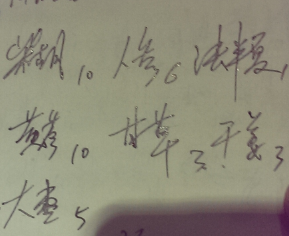 柴胡10 人参6 法半夏
黄芩10 甘草3 干姜3
大枣5